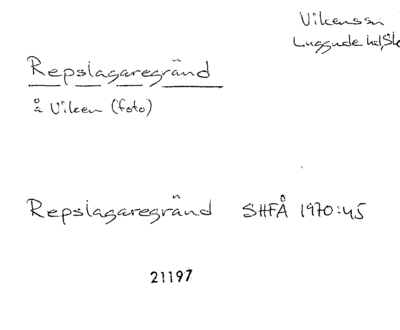 Vikens sn
Luggude hd, Sk
Repslagaregränd
å Viken (foto)
Repslagaregränd SHFÅ 1970:45
21197